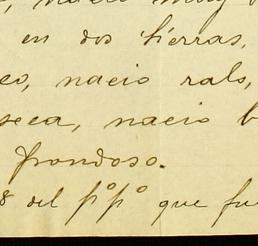 , nacio muy
en dos tierras,
eo, nacio ralo,
seca, nacio b
frondoso.
8 del p.º p.º que fu